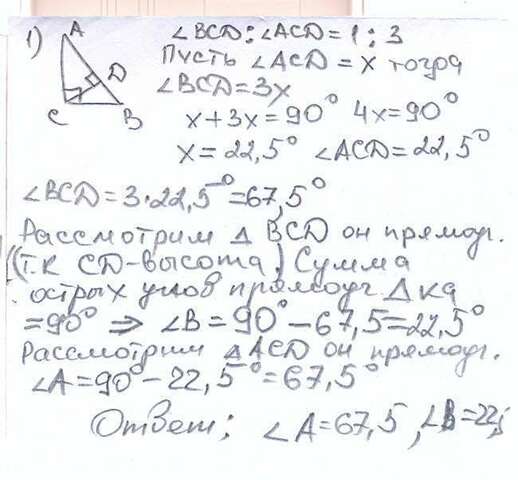 1) A
∠BCD:∠ACD=1:3
Пусть ∠ACD=x тогда
D
∠BCD=3x
C B
x+3x=90° 4x=90°
x=22,5° ∠ACD=22,5°
∠BCD=3·22,5°=67,5°
Рассмотрим Δ BCD он прямоуг.
(т.к CD-высота) Сумма
острых углов прямоуг. Δка
=90° ⇒ ∠B=90°-67,5=22,5°
Рассмотрим ΔACD он прямоуг.
∠A=90°-22,5°=67,5°
Ответ: ∠A=67,5, ∠B=22,5